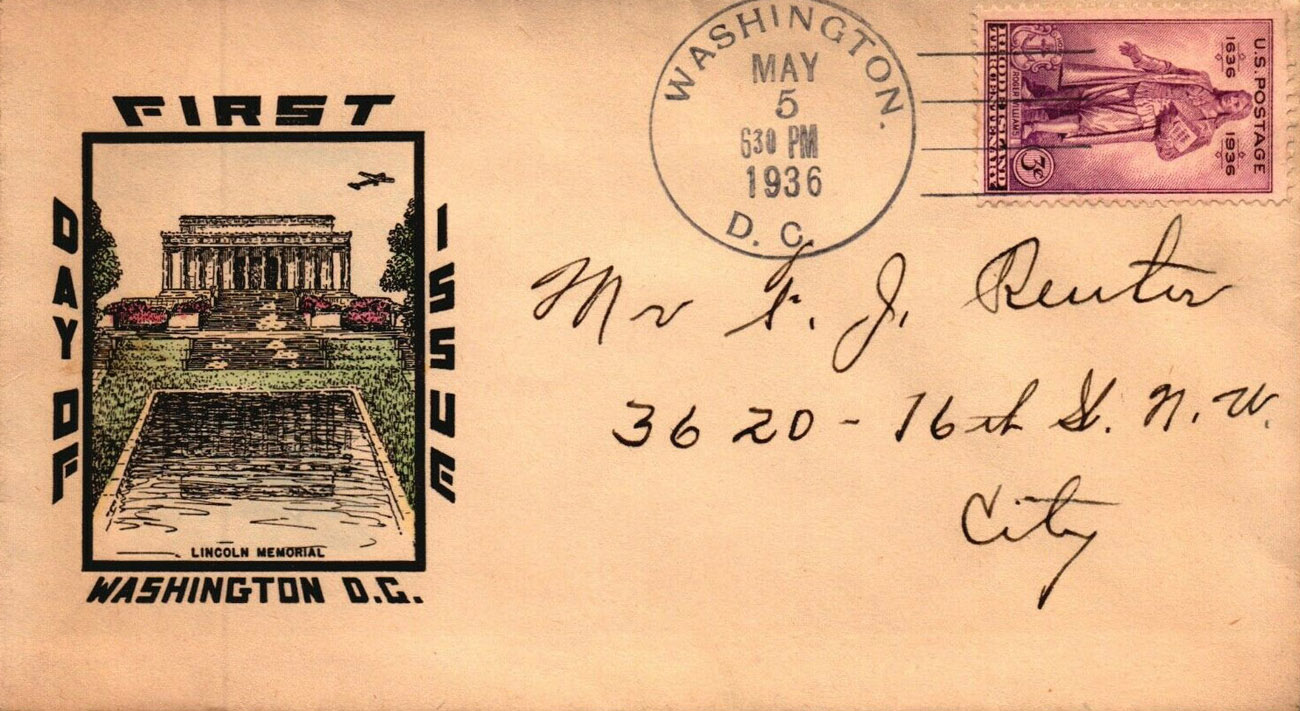 FIRST
DAY OF
ISSUE
LINCOLN MEMORIAL
WASHINGTON D.C.
WASHINGTON.
MAY
5
630 PM
1936
D. C.
U.S. POSTAGE
1636 1936
ROGER WILLIAMS
RHODE ISLAND
TERCENTENARY
3¢
Mr F. J. Reuter
3620 - 16th St. N. W.
City